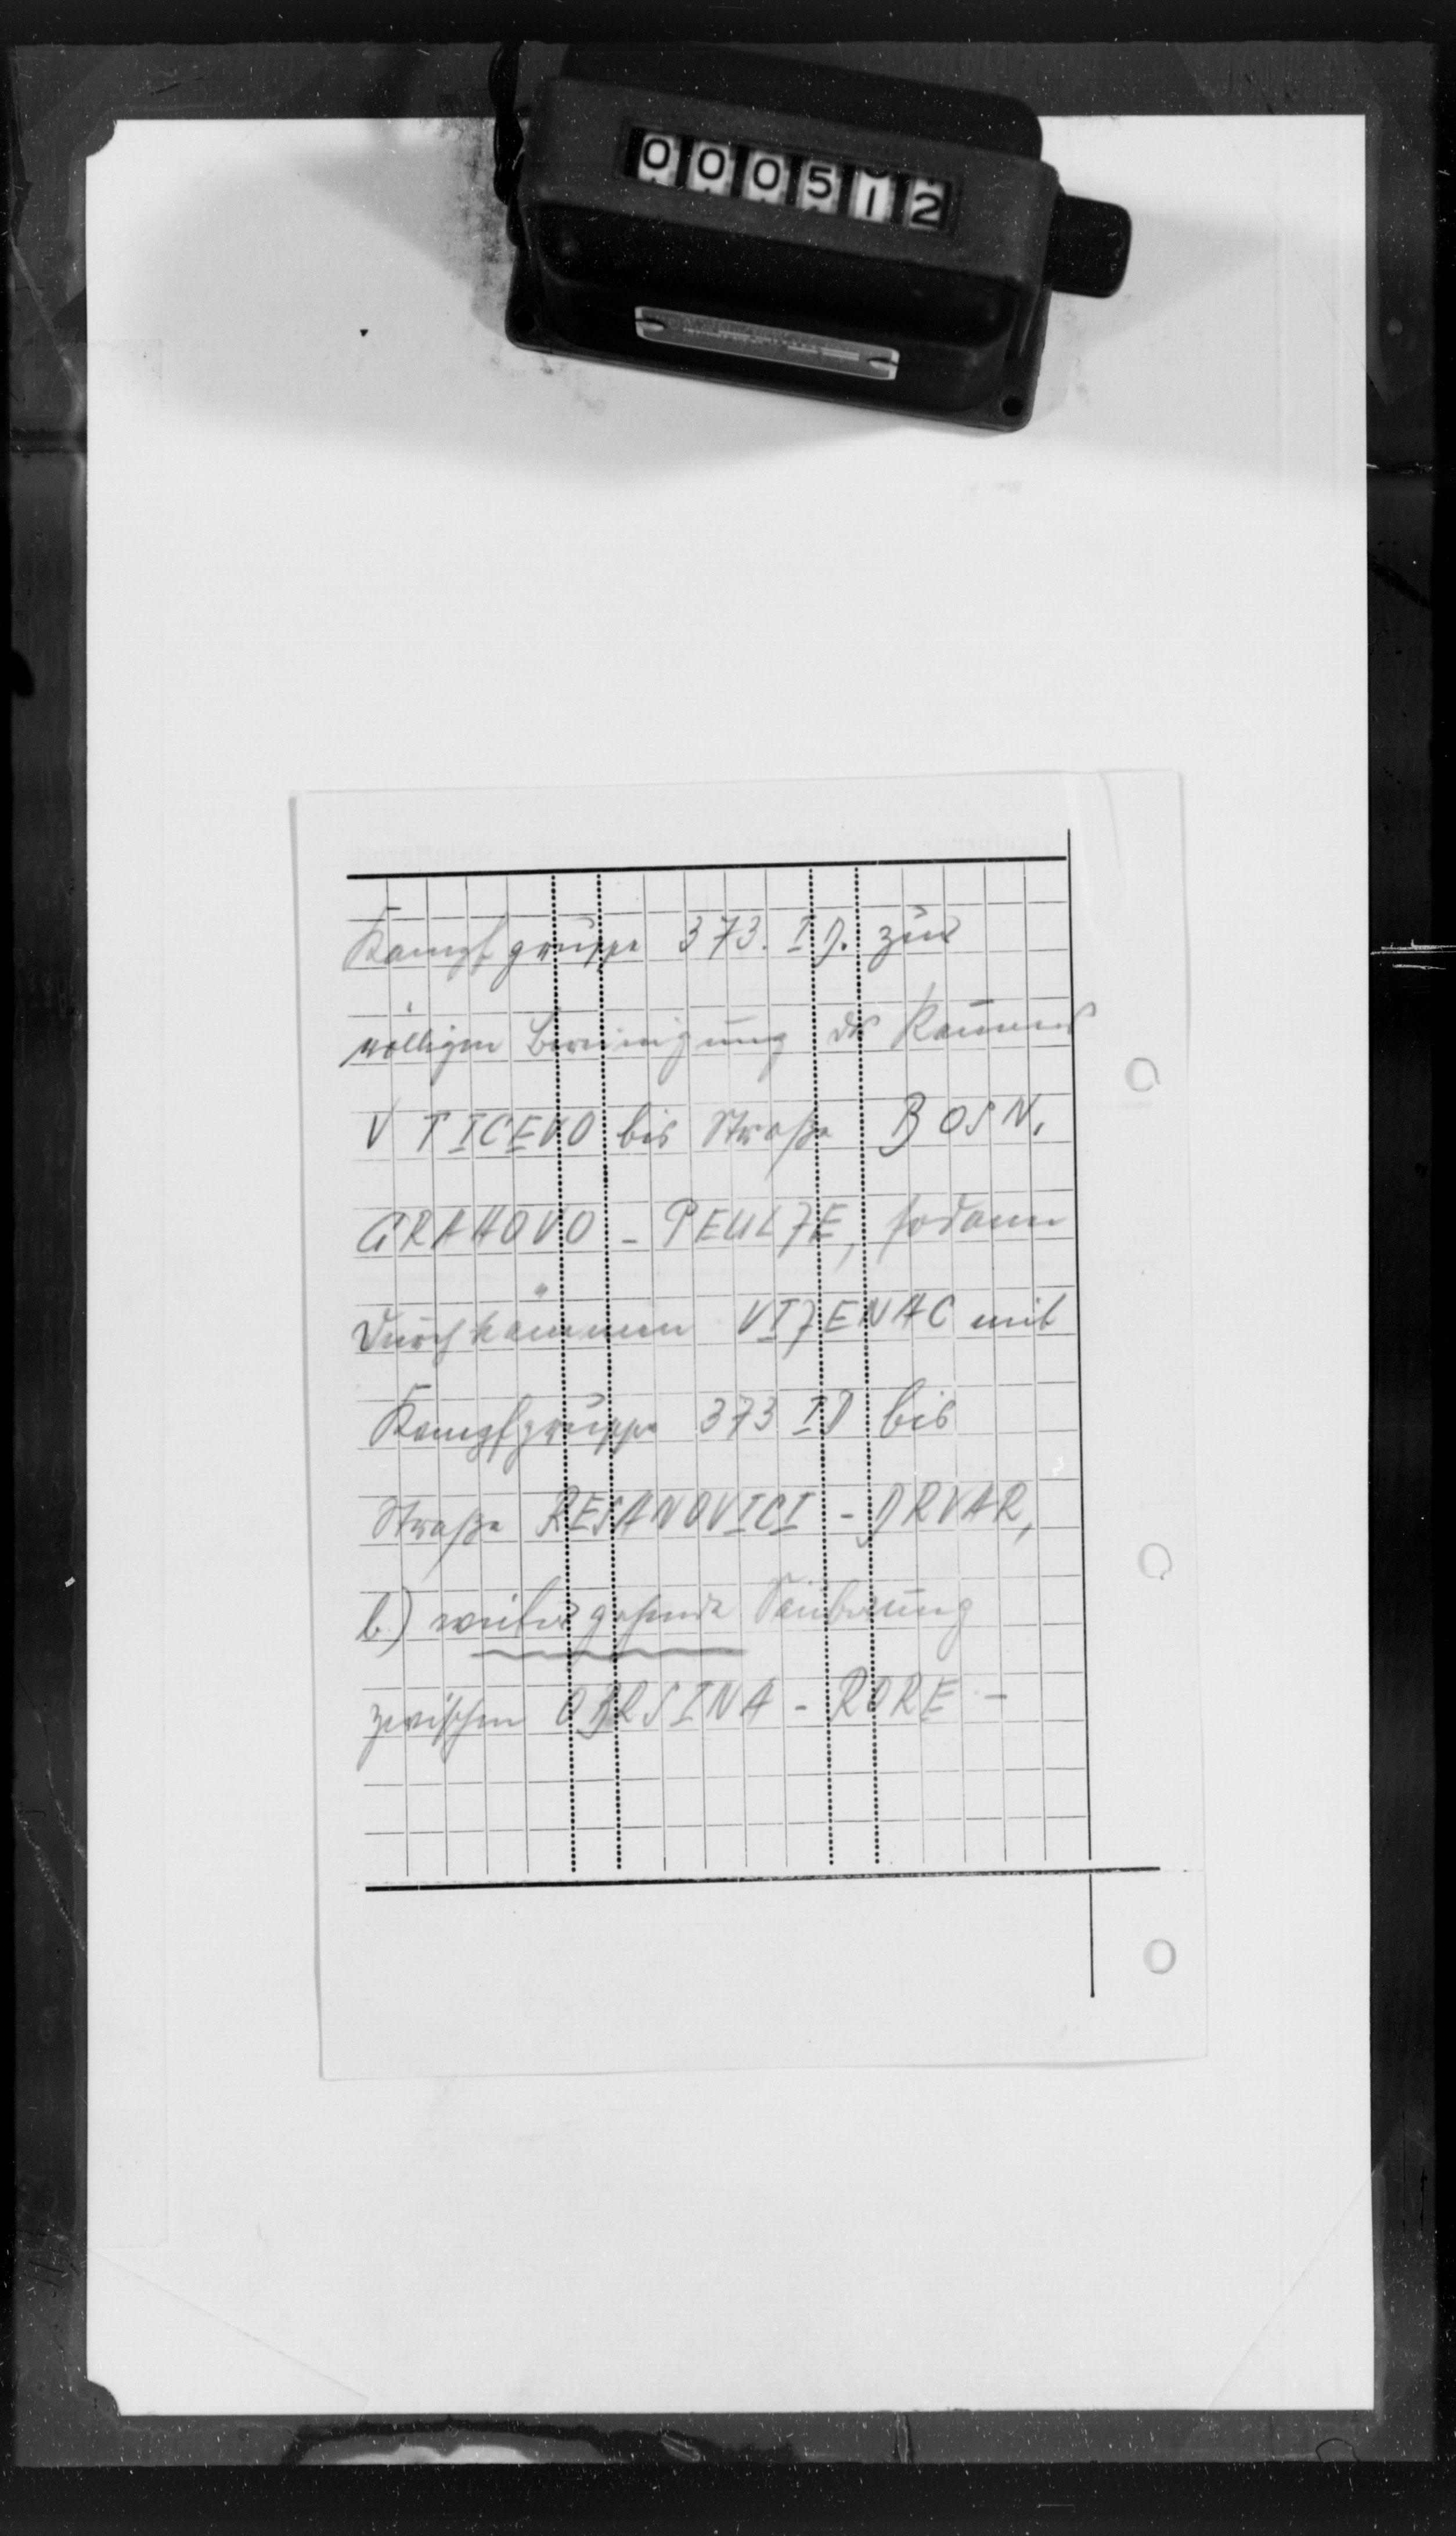 000512
Kampfgruppe 373. I D. zur
völligen Bereinigung des Raumes
V TICEVO bis Straße BOSN.
GRAHOVO - PEULJE, sodann
Durchkämmen VIJENAC mit
Kampfgruppe 373 ID bis
Straße RESANOVICI - DRVAR,
b.) weitergehende Säuberung
zwischen OBRSINA - RORE -